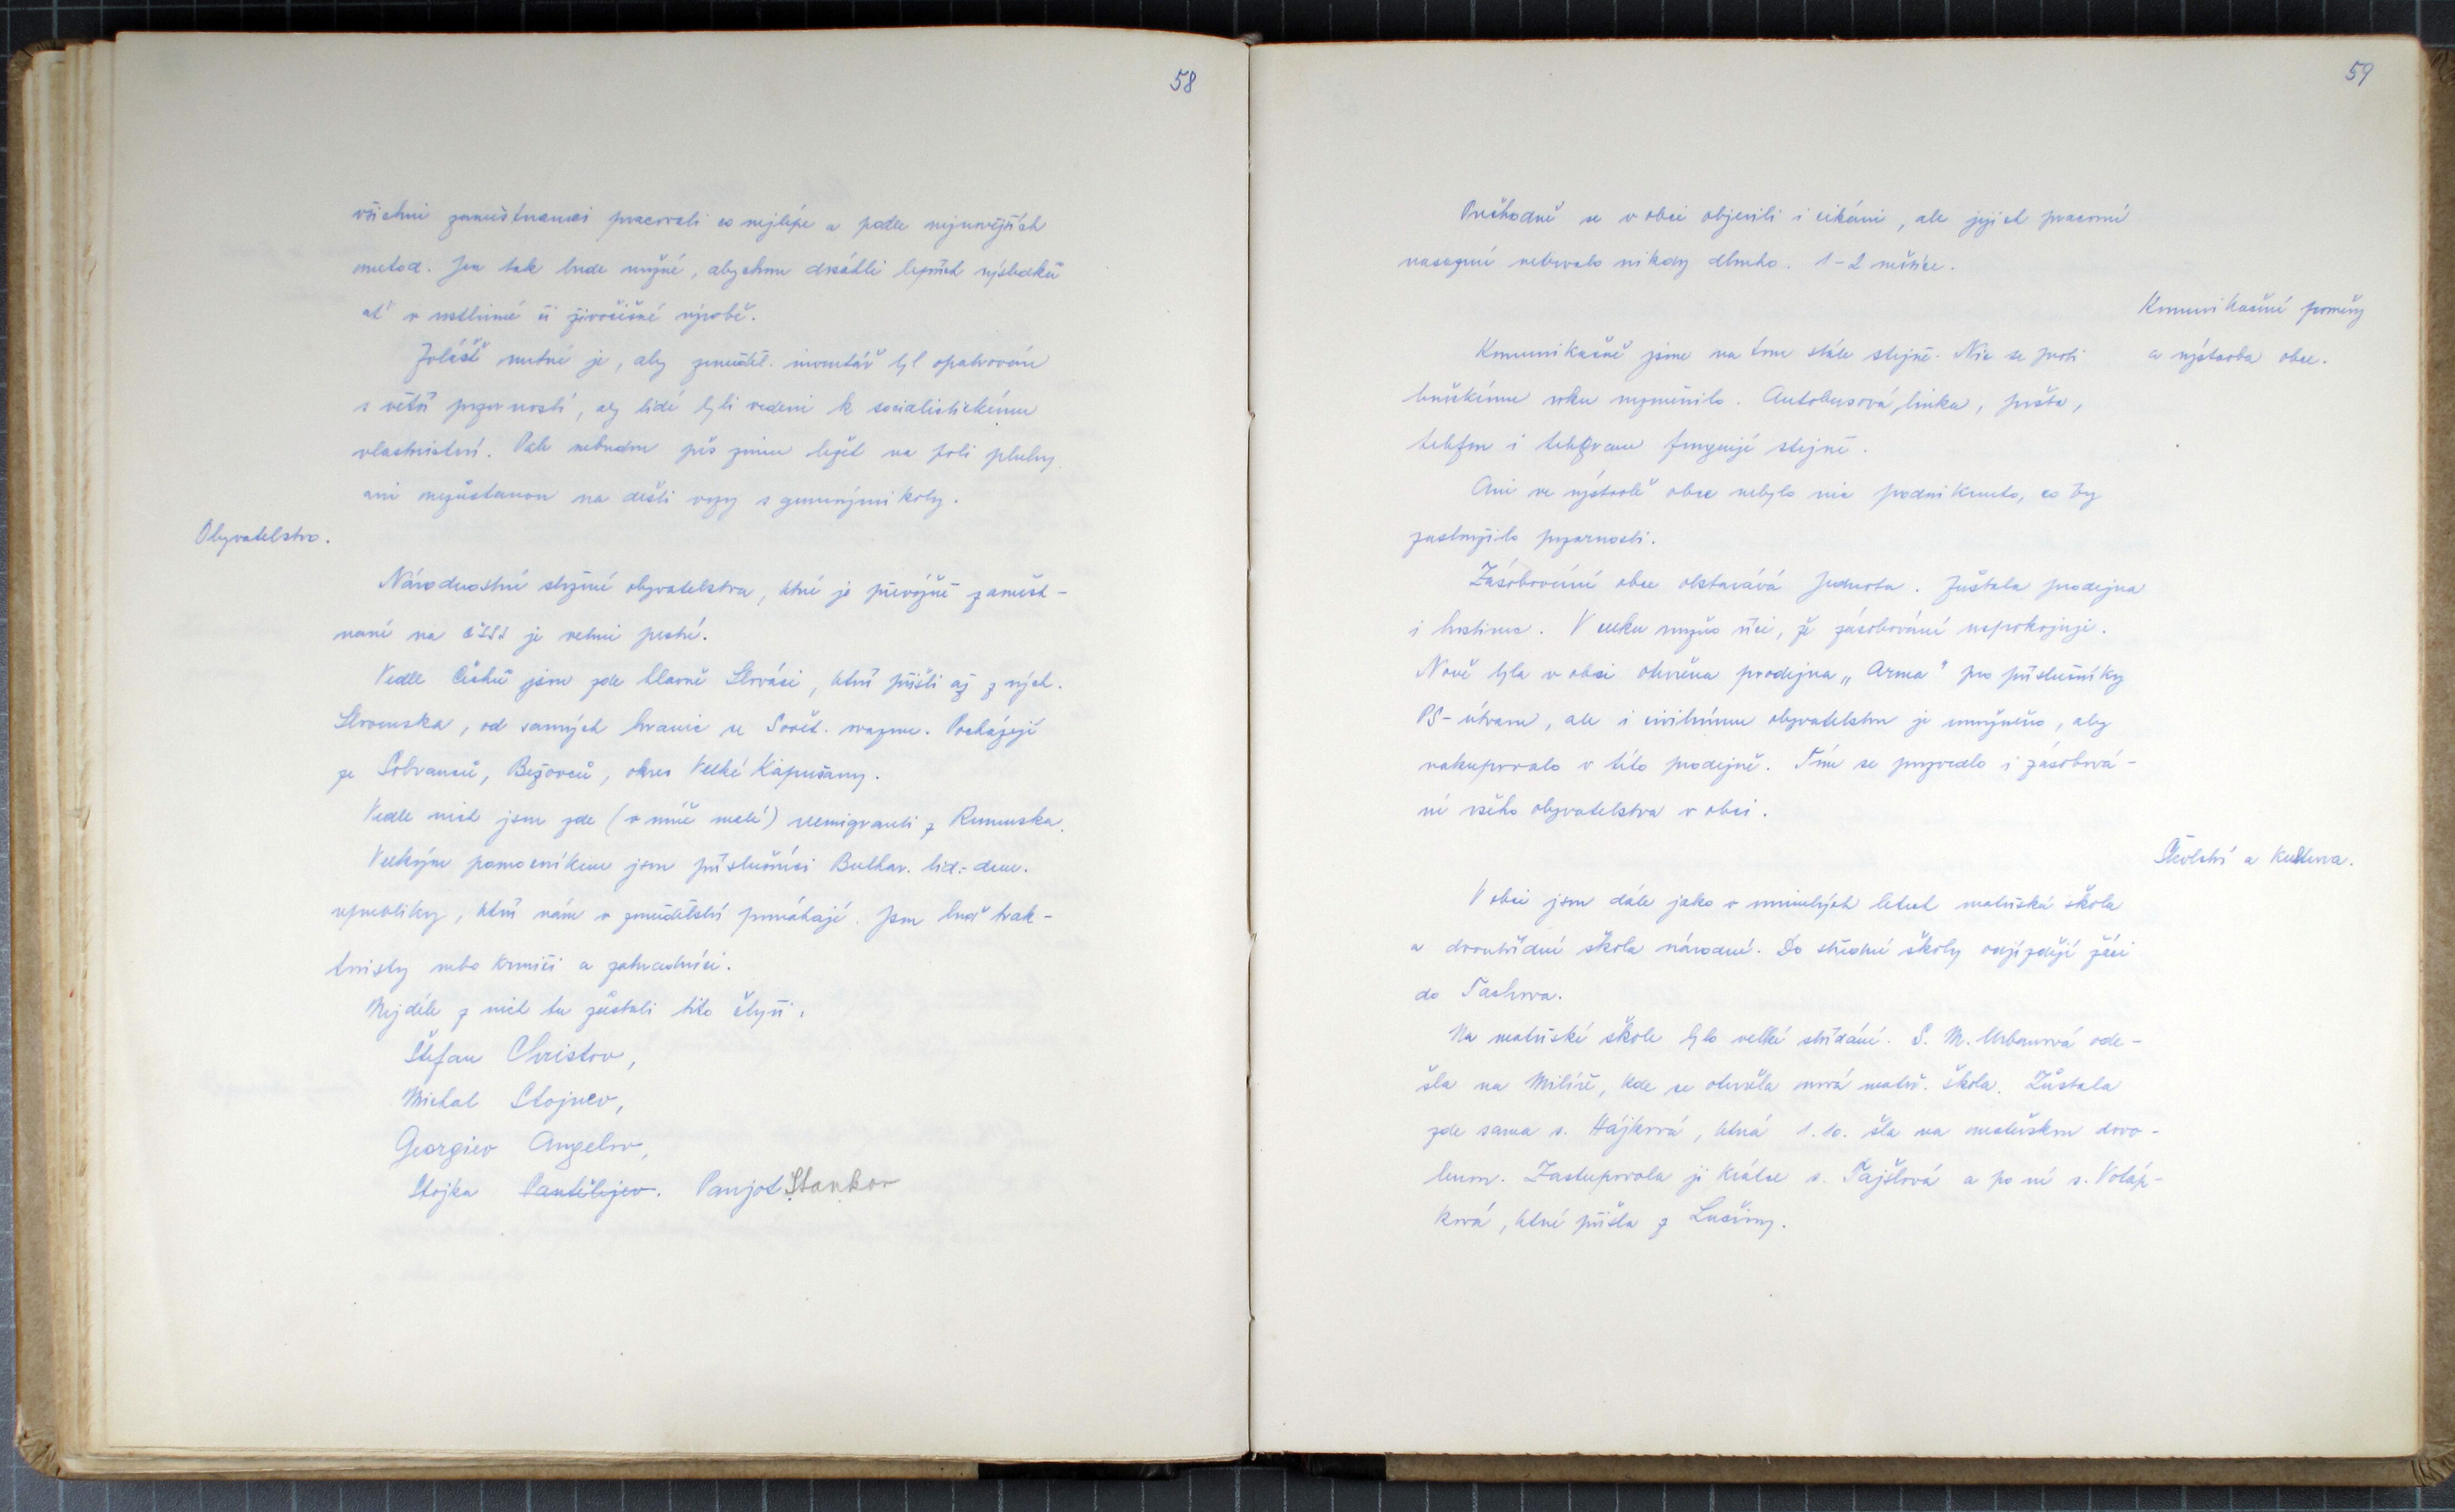 58
všichni zaměstnanci pracovali co nejlépe a podle nejnovějších
metod. Jen tak bude možné, abychom dosáhli lepších výsledků
ať v rostlinné či živočišné výrobě.
Zvláště nutné je, aby zeměděl. inventář byl opatrován
s větší pozorností, aby lidé byli vedeni k socialistickému
vlastnictví. Pak nebudou přes zimu ležet na poli pluhy
ani nezůstanou na dešti vozy s gumovými koly.
Obyvatelstvo.
Národnostní složení obyvatelstva, které je převážně zaměst-
nané na ČSSS je velmi pestré.
Vedle Čechů jsou zde hlavně Slováci, kteří přišli až z vých.
Slovenska, od samých hranic se Sovět. svazem. Pocházejí
ze Sobranců, Bežovců, okres Velké Kapušany.
Vedle nich jsou zde (v míře malé) reemigranti z Rumunska.
Velkým pomocníkem jsou příslušníci Bulhar. lid.-dem.
republiky, kteří nám v zemědělství pomáhají. Jsou buď trak-
toristy nebo krmiči a zahradníci.
Nejdéle z nich tu zůstali tito čtyři:
Štefan Christov,
Michal Stojnev,
Georgiev Angelov,
Stojka Pantělejev. Panjot Stankov
59
Přechodně se v obci objevili i cikáni, ale jejich pracovní
nasazení netrvalo nikdy dlouho. 1-2 měsíce.
Komunikační poměry
a výstavba obce.
Komunikačně jsme na tom stále stejně. Nic se proti
loňskému roku nezměnilo. Autobusová linka, pošta,
telefon i telegram fungují stejně.
Ani ve výstavbě obce nebylo nic podniknuto, co by
zasloužilo pozornosti.
Zásobování obce obstarává Jednota. Zůstala prodejna
i hostinec. V celku možno říci, že zásobování uspokojuje.
Nově byla v obci otevřena prodejna „Arma" pro příslušníky
PS-útvaru, ale i civilnímu obyvatelstvu je umožněno, aby
nakupovalo v této prodejně. Tím se pozvedlo i zásobová-
ní všeho obyvatelstva v obci.
Školství a kultura.
V obci jsou dále jako v minulých letech mateřská škola
a dvoutřídní škola národní. Do střední školy odjíždějí žáci
do Tachova.
Na mateřské škole bylo velké střídání. S. M. Urbanová ode-
šla na Milíře, kde se otevřela nová mateř. škola. Zůstala
zde sama s. Hájková, která 1.10. šla na mateřskou dovo-
lenou. Zastupovala ji krátce s. Tajšlová a po ní s. Votáp-
ková, která přišla z Lučiny.